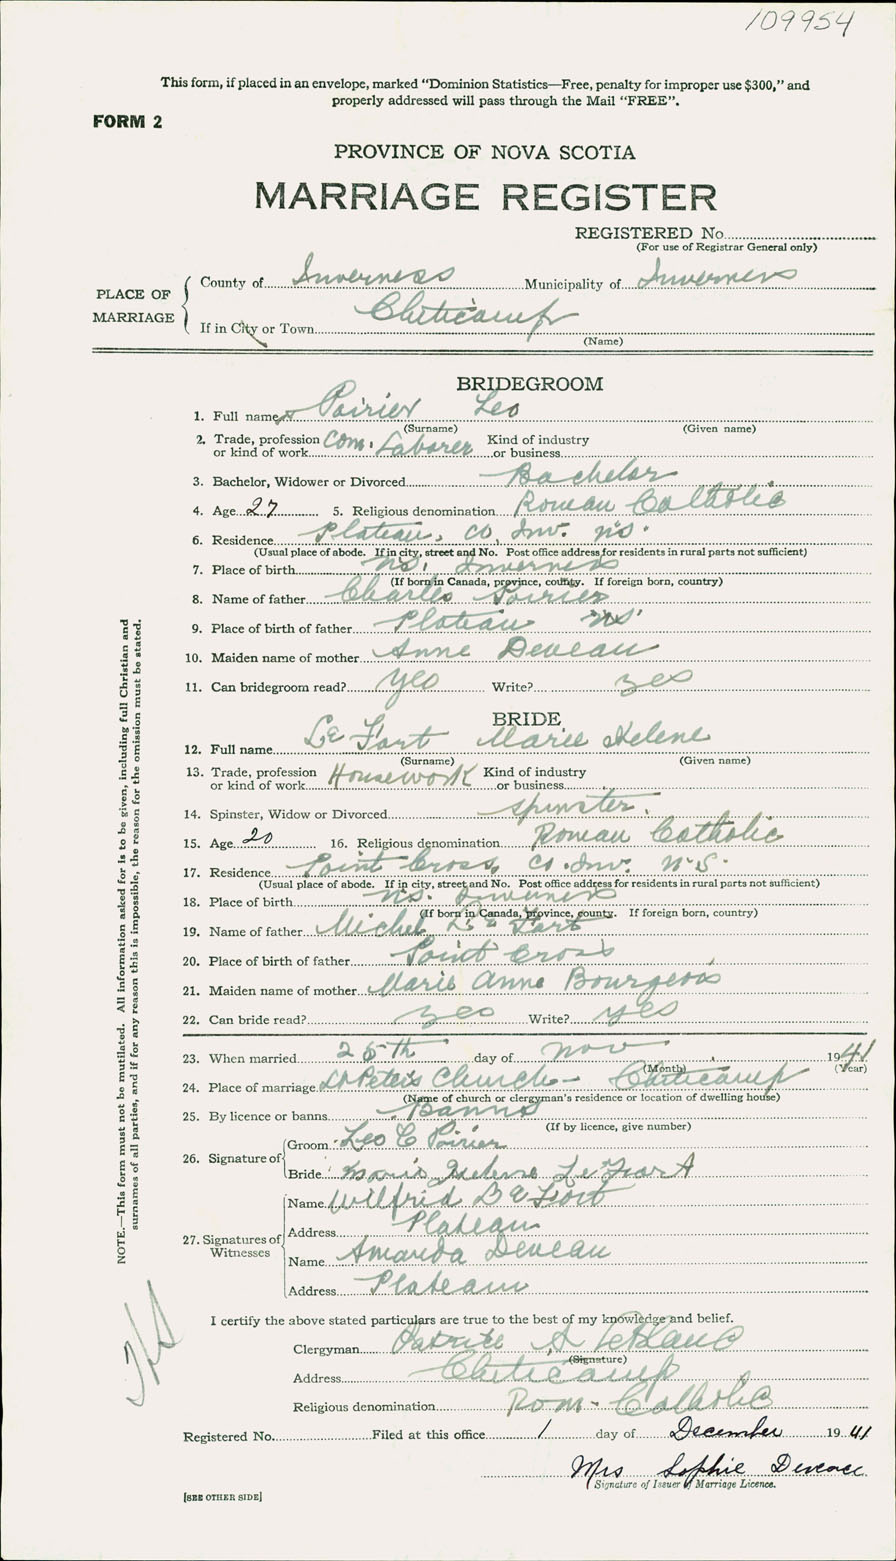 109954
This form, if placed in an envelope, marked "Dominion Statistics—Free, penalty for improper use $300," and
properly addressed will pass through the Mail "FREE".
FORM 2
PROVINCE OF NOVA SCOTIA
MARRIAGE REGISTER
REGISTERED No.
(For use of Registrar General only)
PLACE OF MARRIAGE
County of Inverness Municipality of Inverness
If in City or Town Cheticamp
(Name)
BRIDEGROOM
1. Full name Poirier Leo
(Surname) (Given name)
2. Trade, profession or kind of work Com. Laborer Kind of industry or business
3. Bachelor, Widower or Divorced Bachelor
4. Age 27 5. Religious denomination Roman Catholic
6. Residence Plateau, Co, Inv. N.S.
(Usual place of abode. If in city, street and No. Post office address for residents in rural parts not sufficient)
7. Place of birth N.S. Inverness
(If born in Canada, province, county. If foreign born, country)
8. Name of father Charles Poirier
9. Place of birth of father Plateau N.S.
10. Maiden name of mother Anne Deveau
11. Can bridegroom read? yes Write? yes
BRIDE
12. Full name Le Fort Marie Helene
(Surname) (Given name)
13. Trade, profession or kind of work Housework Kind of industry or business
14. Spinster, Widow or Divorced spinster.
15. Age 20 16. Religious denomination Roman Catholic
17. Residence Point Cross, Co. Inv. N.S.
(Usual place of abode. If in city, street and No. Post office address for residents in rural parts not sufficient)
18. Place of birth N.S. Inverness
(If born in Canada, province, county. If foreign born, country)
19. Name of father Michel Le Fort
20. Place of birth of father Point Cross
21. Maiden name of mother Marie Anne Bourgeois
22. Can bride read? yes Write? yes
23. When married 25th day of Nov 1941
(Month) (Year)
24. Place of marriage St Peter's Church - Cheticamp
(Name of church or clergyman's residence or location of dwelling house)
25. By licence or banns Banns
(If by licence, give number)
26. Signature of
Groom Leo C Poirier
Bride Marie Helene Le Fort
27. Signatures of Witnesses
Name Wilfrid Le Fort
Address Plateau
Name Amanda Deveau
Address Plateau
I certify the above stated particulars are true to the best of my knowledge and belief.
Clergyman Patrice A LeBlanc
(Signature)
Address Cheticamp
Religious denomination Rom. Catholic
Registered No. Filed at this office 1 day of December 1941
Mrs Sophie Deveau
Signature of Issuer of Marriage Licence.
[SEE OTHER SIDE]
NOTE.—This form must not be mutilated. All information asked for is to be given, including full Christian and
surnames of all parties, and if for any reason this is impossible, the reason for the omission must be stated.